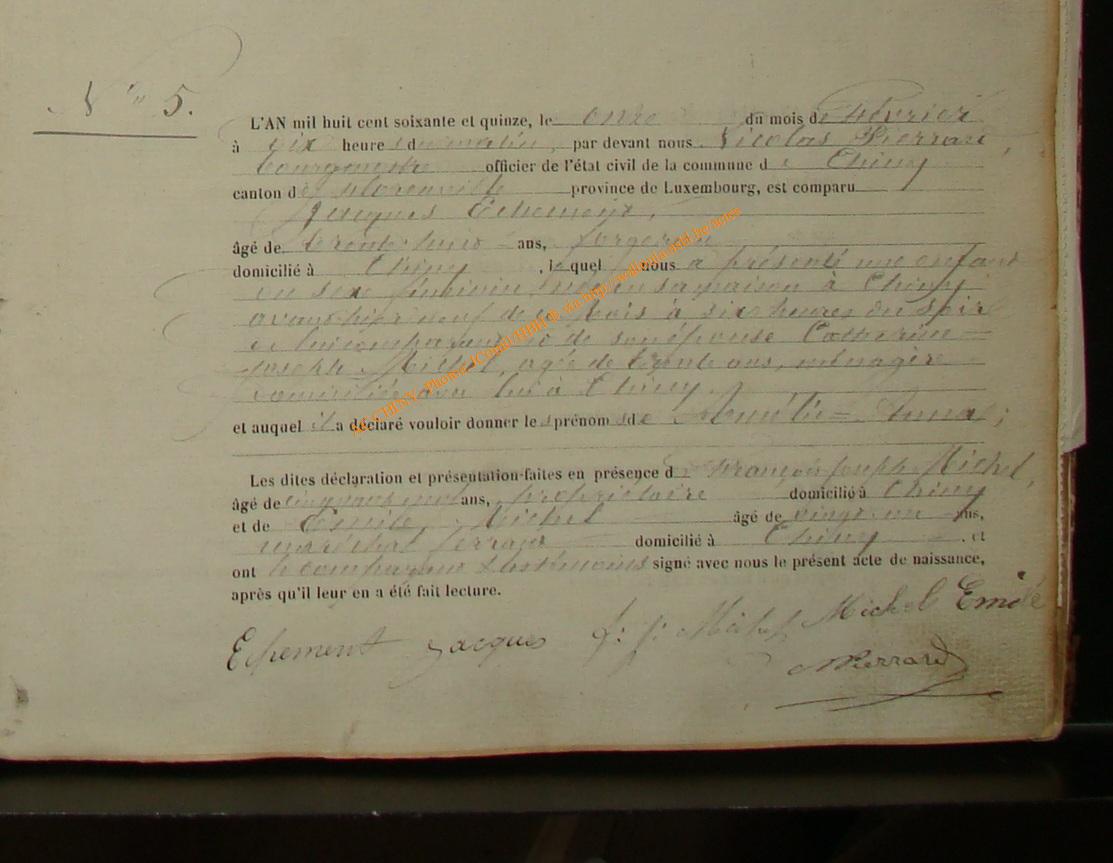 N° 5.
L'AN mil huit cent soixante et quinze, le onze du mois de Février
à dix heures du matin, par devant nous Nicolas Pierrard,
bourgmestre officier de l'état civil de la commune de Chiny
canton de Florenville province de Luxembourg, est comparu
Jacques Echement,
âgé de trente huit ans, forgeron
domicilié à Chiny, lequel nous a présenté une enfant
du sexe féminin, née en sa maison à Chiny
avant-hier neuf de ce mois à six heures du soir
de lui comparant et de son épouse Catherine
Joseph Michel, agée de trente ans, ménagère
domiciliée avec lui à Chiny.
et auquel il a déclaré vouloir donner les prénoms de Amélie Anna;
Les dites déclaration et présentation faites en présence de François Joseph Michel,
âgé de cinquante neuf ans, propriétaire domicilié à Chiny
et de Emile Michel âgé de vingt un ans,
maréchal ferrant domicilié à Chiny. et
ont le comparant & les témoins signé avec nous le présent acte de naissance,
après qu'il leur en a été fait lecture.
Echement Jacques f: j: Michel Michel Emile
NPierrard